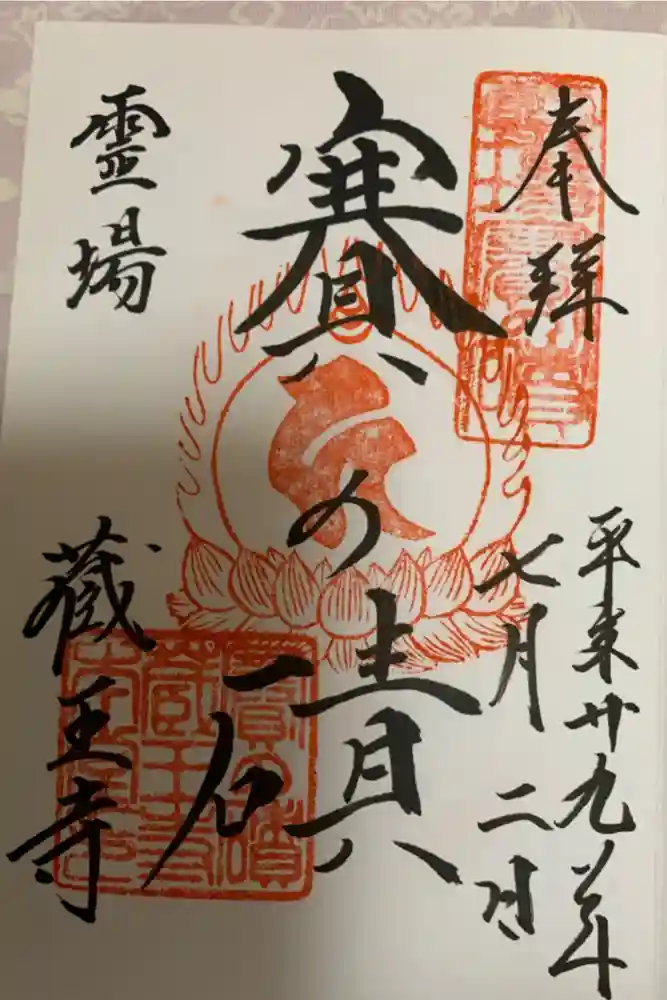 奉拝
平成廿九年
七月二日
賽の磧
霊場
蔵王寺